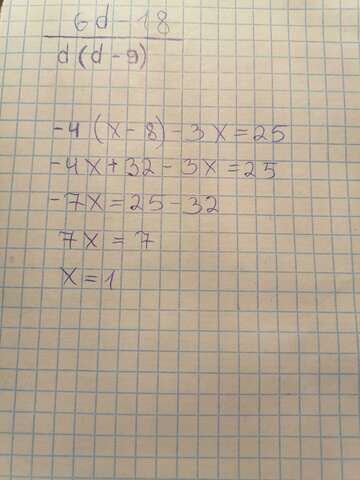 6d - 18
d(d - 9)
-4(x - 8) - 3x = 25
-4x + 32 - 3x = 25
-7x = 25 - 32
7x = 7
x = 1